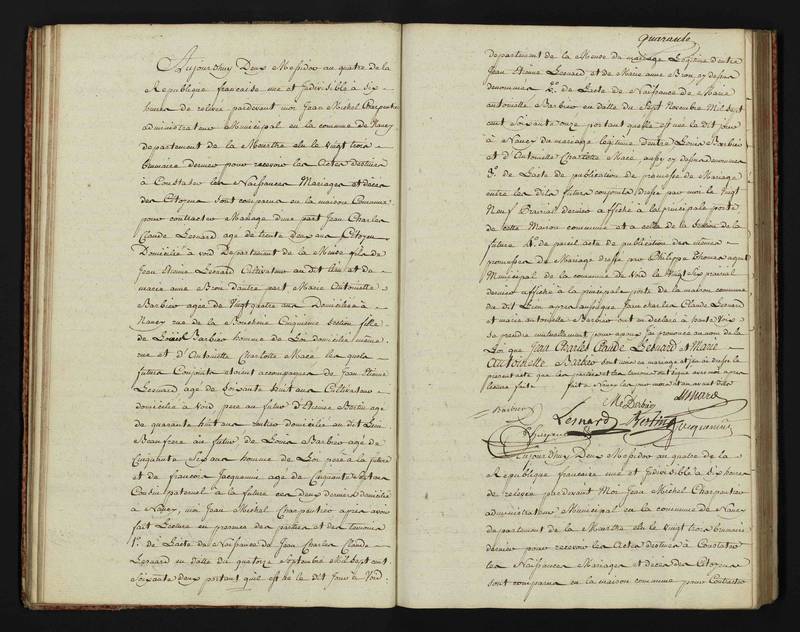 Aujourdhuy Deux Messidor an quatre de la
Republique francaise une et Indivisible à Six
heures de relevée pardevant moi Jean Michel Charpentier
administrateur Municipal en la commune de Nancy
departement de la Meurthe elu le Vingt trois
brumaire dernier pour recevoir les Actes destinés
à Constater les Naissances Mariages et decès
des Citoyens sont comparus en la maison Commune
pour contracter Mariage d'une part Jean Charles
Claude Lesnard agé de trente deux ans Citoyen
Domicilié à void Departement de la Meuse fils de
Jean Etienne Lesnard Cultivateur audit lieu et de
marie anne d'autre part Marie Antoinette
Barbier agée de Vingt quatre ans Domiciliée à
Nancy rue de la Boucherie Cinquieme Section fille
de Louis Barbier homme de Loi domicilié même
rue et d'Antoinette Charlotte Macé les quels
futurs Conjoints etoient accompagnés de Jean Etienne
Lesnard agé de soixante huit ans Cultivateur
domicilié à Void pere au futur d'Etienne agé
de quarante huit ans domicilié au dit Lieu
Beaufrere au futur de Louis Barbier agé de
Cinquante Six ans homme de Loi pere à la future
et de francois Jacquemin agé de Cinquante ans
Cousin paternel à la future ces deux derniers domiciliés
à Nancy, moi Jean Michel Charpentier après avoir
fait Lecture en presence des parties et des temoins
1º. de Lacte de Naissance de Jean Charles Claude
Lesnard en datte du quatorze Septembre Mil Sept cent
Soixante deux portant qu'il est né le dit Jour à Void
quarante
departement de la Meuse du mariage Legitime d'entre
Jean Etienne Lesnard et de Marie anne cy dessus
denommés 2º. de Lacte de Naissance de Marie
antoinette Barbier en datte du Sept Novembre Mil Sept
cent Soixante onze portant quelle est née le dit jour
à Nancy du mariage legitime d'entre Louis Barbier
et d'Antoinette Charlotte Macé aussy cy dessus denommés
3º. de Lacte de publication de promesse de Mariage
entre les dits futurs conjoints dressé par moi le Vingt
Neuf Prairial dernier affiché à la principale porte
de cette Maison commune et a celle de la Section de la
future 4º. de pareil acte de publication des mêmes
promesses de Mariage dressé par Philippe agent
Municipal de la commune de Void le Vingt Six prairial
dernier affiché à la principale porte de la maison commune
du dit Lieu apres aussy que Jean charles Claude Lesnard
et marie antoinette Barbier ont eu declaré à haute Voix
se prendre mutuellement pour epoux J'ai prononcé au nom de la
Loi que Jean Charles Claude Lesnard et Marie
Antoinette Barbier sont unis en mariage et j'en ai dressé le
present acte que les parties et les temoins ont signé avec moi apres
lecture faite fait a Nancy les jour mois et an avant dits
Barbier M. Barbier Lesnard
Lesnard Jacquemin
Aujourdhuy Deux Messidor an quatre de la
Republique francaise une et Indivisible à Six heures
de relevée pardevant Moi Jean Michel Charpentier
administrateur Municipal en la commune de Nancy
departement de la Meurthe elu le Vingt trois brumaire
dernier pour recevoir les Actes destinés à Constater
les Naissances Mariages et decès des Citoyens
sont comparus en la maison commune pour Contracter